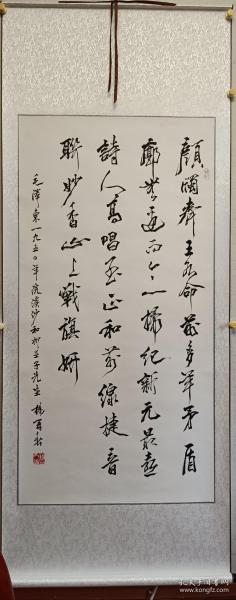 顏斶齊王各命前多年矛盾
廓無邊而今一掃紀新元最喜
詩人高唱至正和前線捷音
聯妙香山上戰旗妍
毛澤東一九五〇年浣溪沙和柳亞子先生 楊